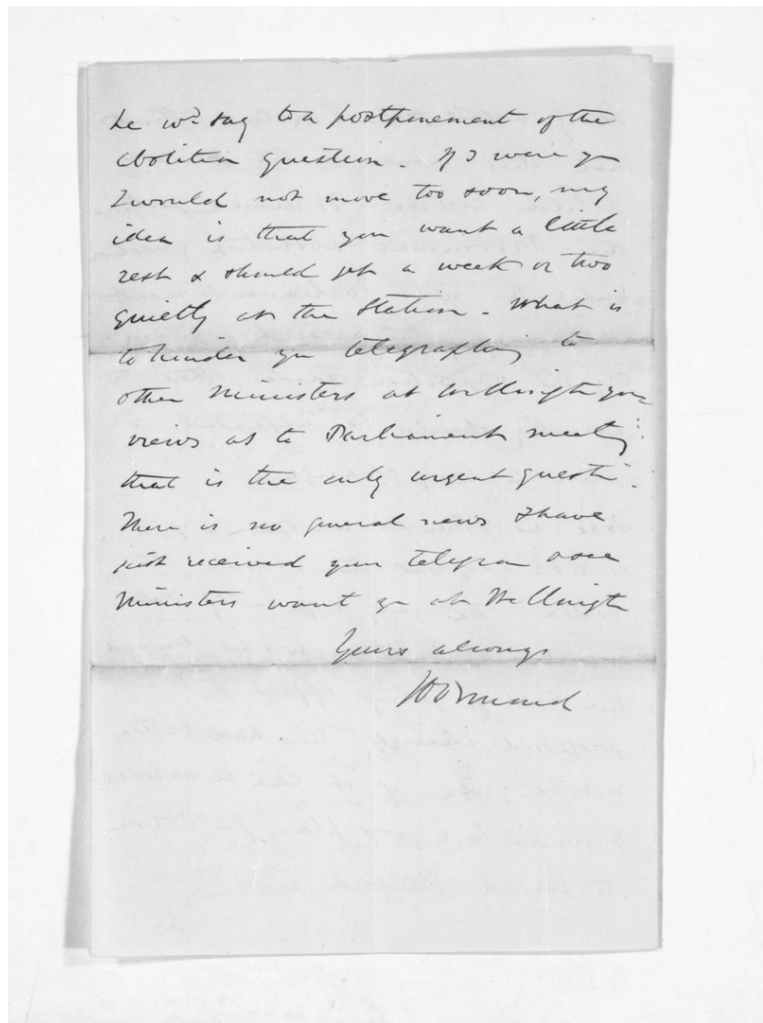 he wd say to a postponement of the
abolition question. If I were you
I would not move too soon, my
idea is that you want a little
rest & should get a week or two
quietly at the Station. What is
to hinder you telegraphing to
other Ministers at Wellington your
views as to Parliament meeting
that is the only urgent question.
There is no general news I have
just received your telegram & see
Ministers want you at Wellington
Yours always
JD Ormond